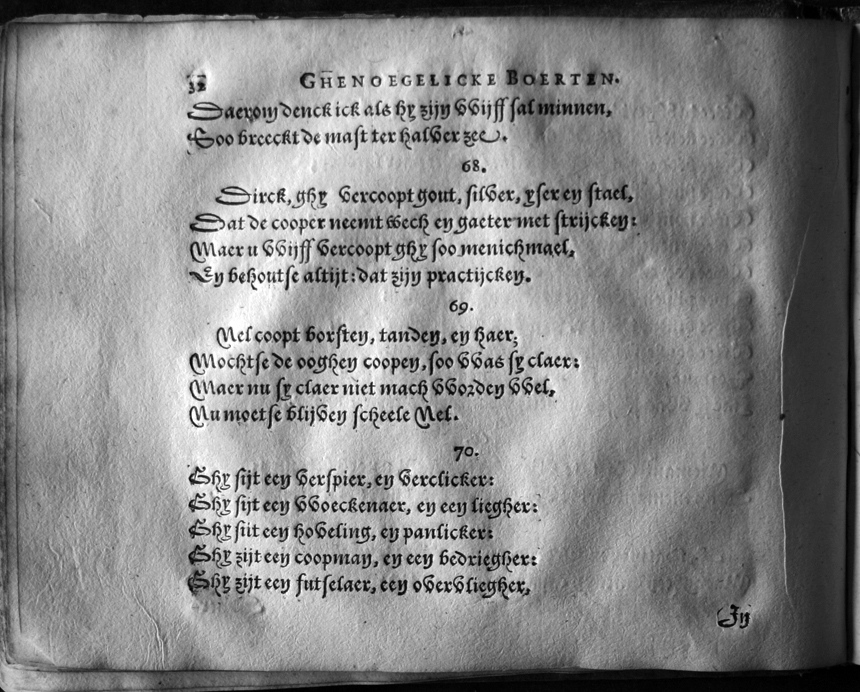 32 GHENOEGELICKE BOERTEN.
Daerom denck ick als hy zijn Wijff sal minnen,
Soo breeckt de mast ter halver zee.
68.
Dirck, ghy vercoopt gout, silver, yser en stael,
Dat de cooper neemt wech en gaeter met strijcken:
Maer u Wijff vercoopt ghy soo menichmael,
En behoutse altijt: dat zijn practijcken.
69.
Nel coopt borsten, tanden, en haer,
Mochtse de ooghen coopen, soo was sy claer:
Maer nu sy claer niet mach worden wel,
Nu moetse blijven scheele Nel.
70.
Ghy sijt een verspier, en verclicker:
Ghy sijt een Woeckenaer, en een liegher:
Ghy siit een hoveling, en panlicker:
Ghy zijt een coopman, en een bedriegher:
Ghy zijt een futselaer, een overvliegher,
In